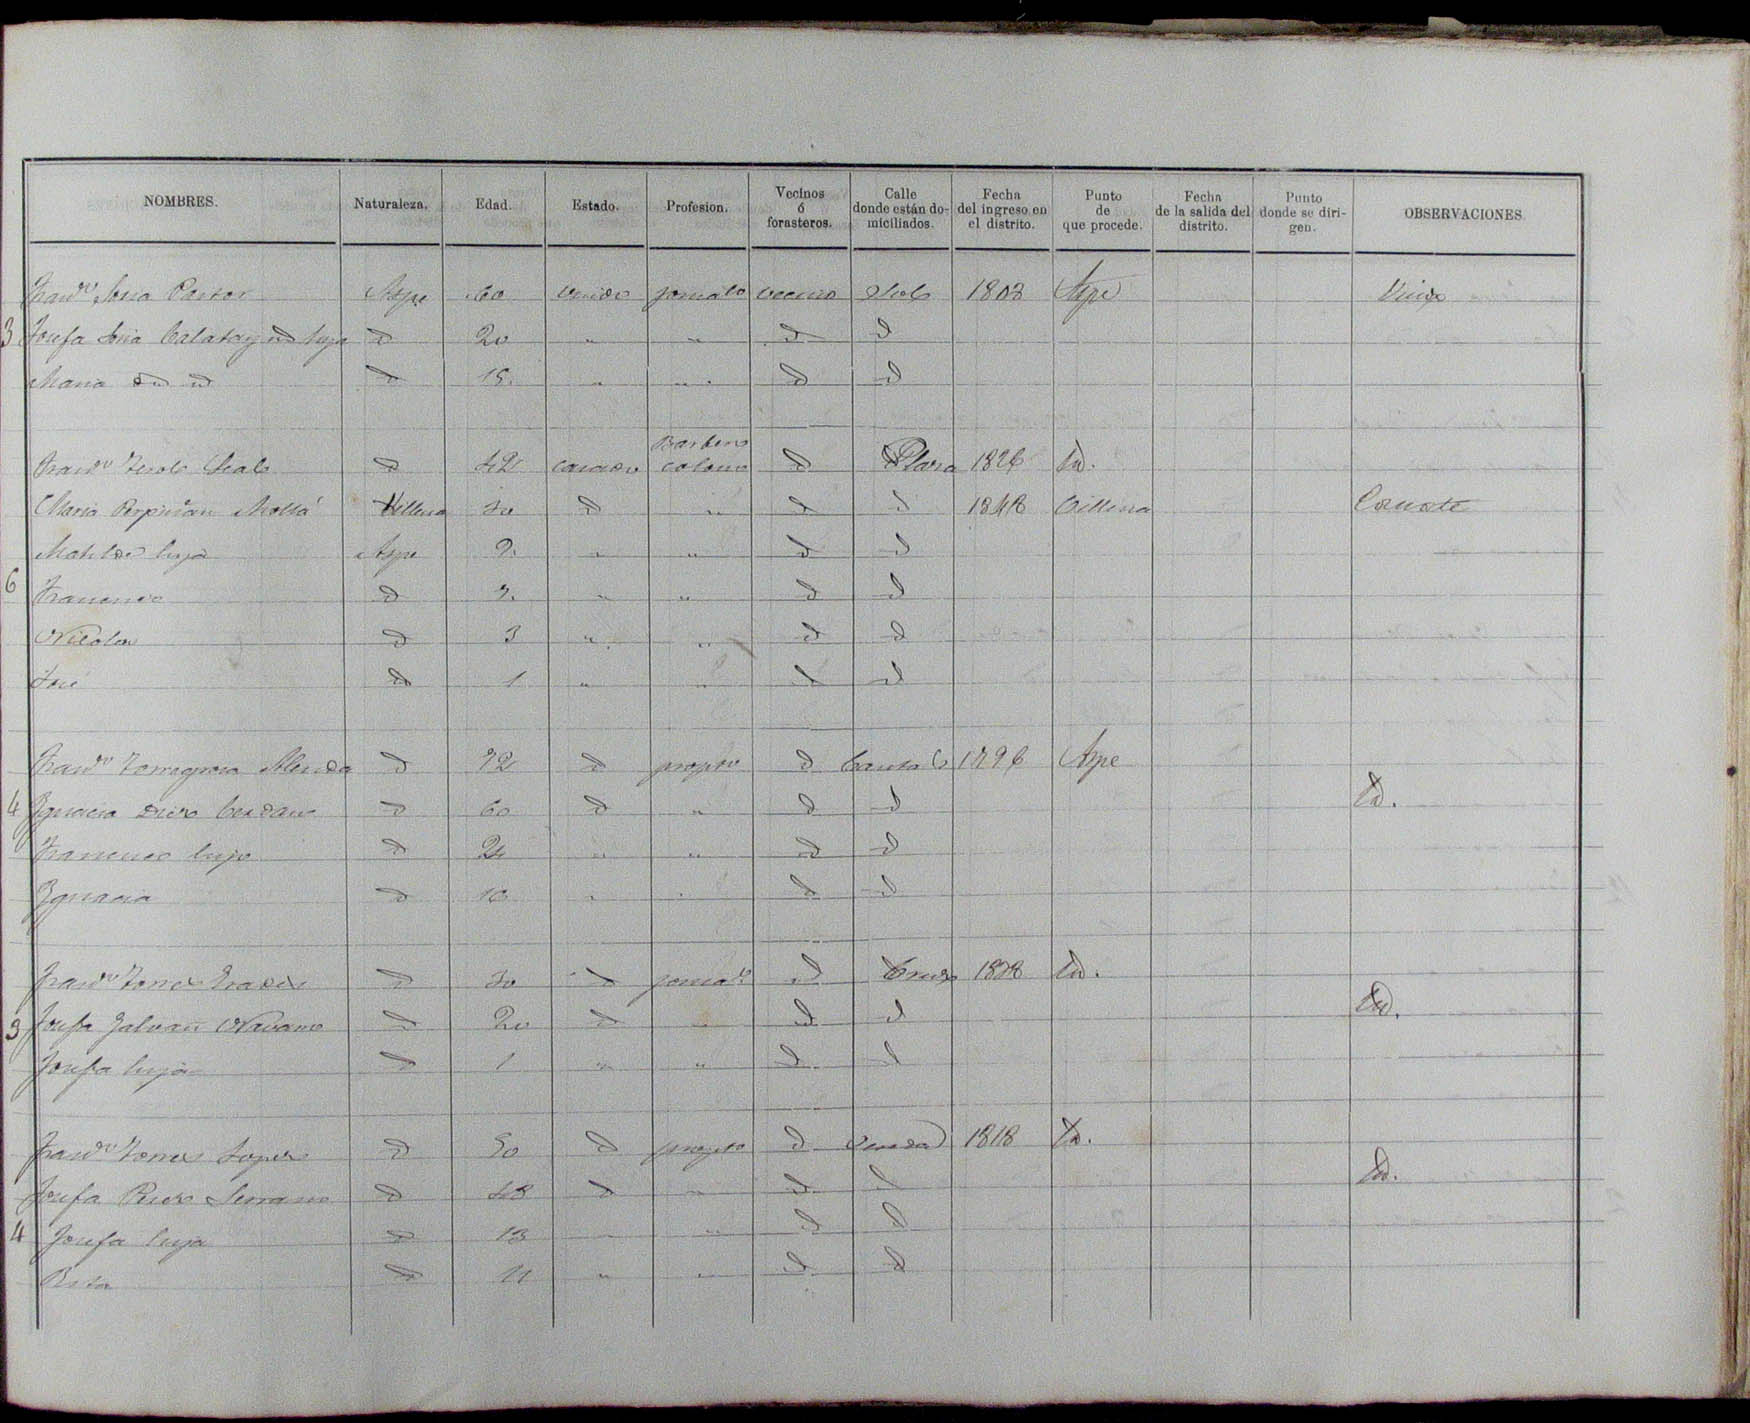 NOMBRES. Naturaleza. Edad. Estado. Profesion. Vecinos ó forasteros. Calle donde están domiciliados. Fecha del ingreso en el distrito. Punto de que procede. Fecha de la salida del distrito. Punto donde se dirigen. OBSERVACIONES
Franco Soria Pastor Aspe 60 viudo jornalo vecino 1808 Aspe
3 Josefa Soria Calatayud hija d 20 " " d d
Maria d d d 18. " " d d
Barbero
Franco d 42 casado colono d Plaza 1826 Id.
Maria Perpiñan Mollá Villena 40 d " d d 1848 Villena Consorte
Matilde hija Aspe 9 " " d d
6 Francisco d 7. " " d d
Nicolas d 3 " " d d
José d 1 " " d d
Franco Torregrosa Almoda d 72 d propio d 1796 Aspe
4 Ignacia Cerdan d 60 d " d d Id.
Francisco hijo d 24 " " d d
Ignacia d 10 " " d d
Franco Torres d 30 d jornalo d Cruz 1828 Id.
3 Josefa Galvañ Navarro d 20 d " d d Id.
Josefa hija d 1 " " d d
Franco Torres Lopez d 50 d propio d 1818 Id.
Josefa Perez Serrano d 48 d " d d Id.
4 Josefa hija d 13 " " d d
Rita d 11 " " d d